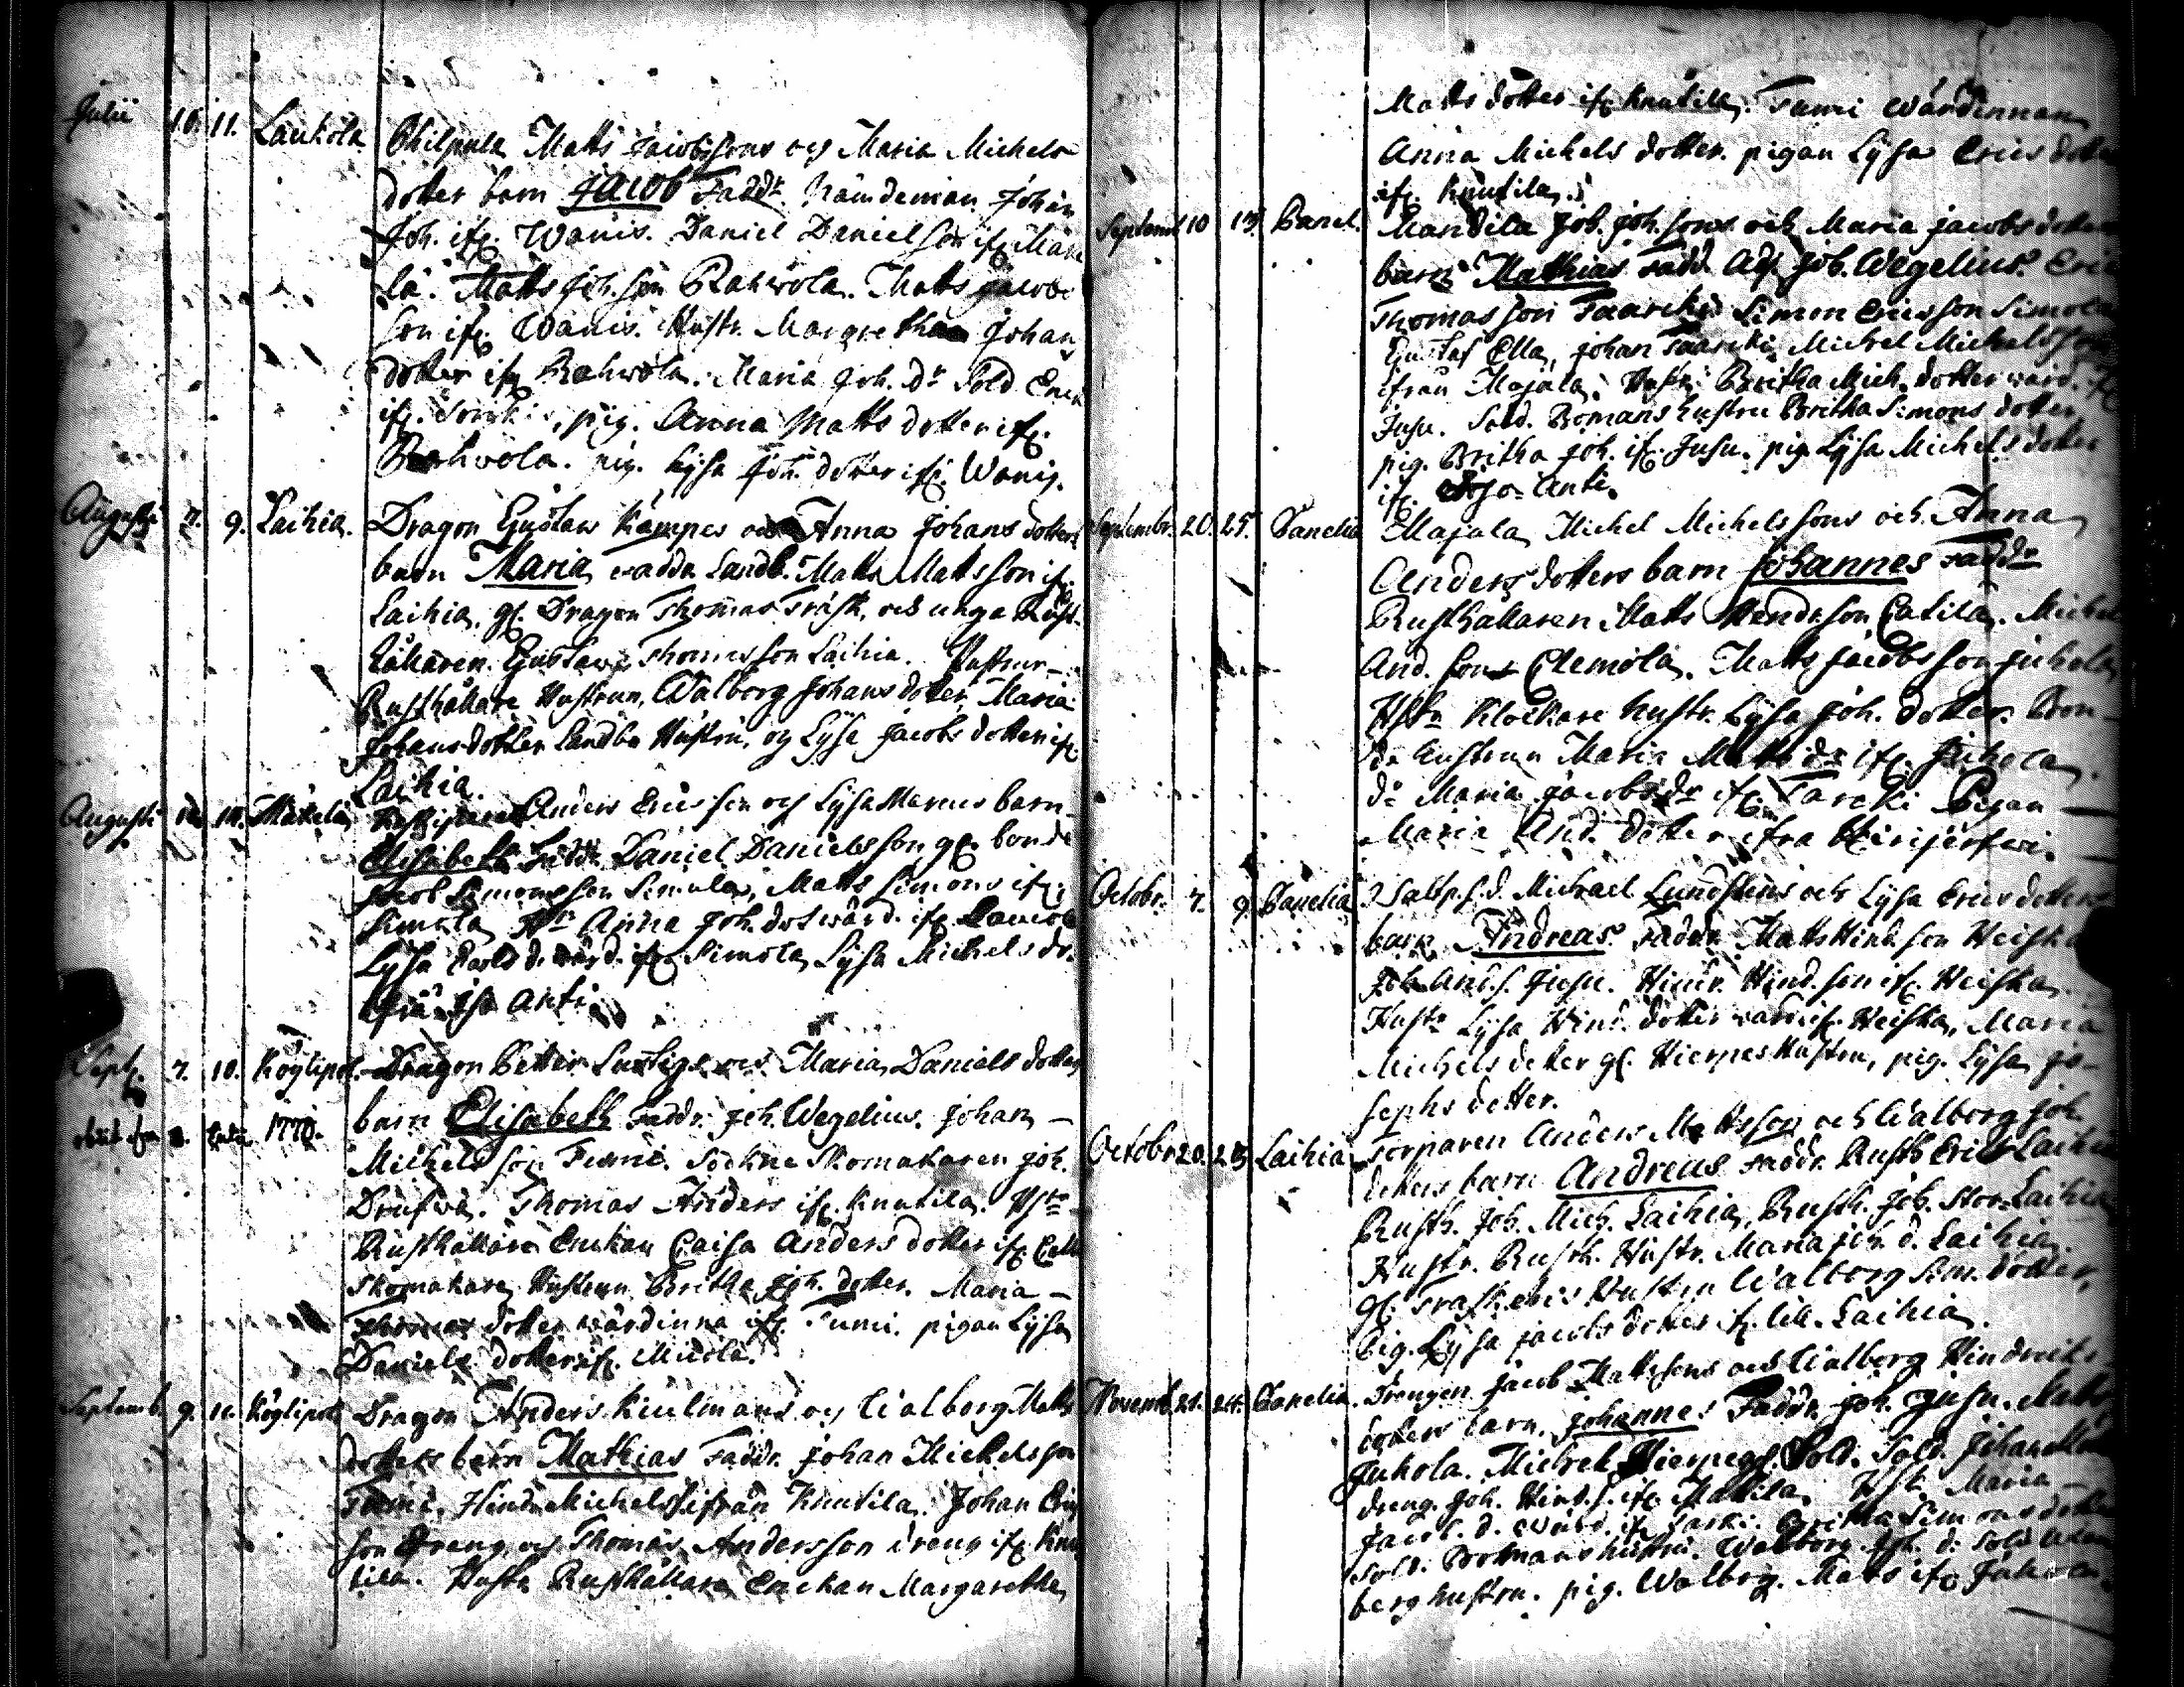 Julii 10. 11. Laukola Philpula Matts Jacobssons och Maria Michels
dotter barn Jacob Faddr. Nämdeman Johan
Joh. ifr. Wanis. Daniel Danielson ifr. Mäke
lä. Matts Joh. son Rahwola. Matts Jacobs
son ifr. Wanis. Hustr. Margretha Johan
dotter ifr. Rahwola. Maria Joh. dr Sold. Erik
ifr. pig. Anna Matts dotter ifr.
Rahwola. pig. Lysa Joh. dotter ifr. Wanis.
Augusti 7. 9. Laihia. Dragon Gustaw Kämpes och Anna Johans dotters
barn Maria Faddr. Landb. Matts Mattsson if.
Laihia, gl. Dragon Thomas Träsk, och unga Rust-
hållaren Gustaw Thomasson Laihia. Hustrur
Rusthållare Hustrun, Walborg Johans dotter, Maria
Johansdotter Landbo Hustru, og Lysa Jacobs dotter ifr.
Laihia.
Augusti 14. Mäkelä Anders Ericsson och Lysa Marcus barn
Elisabeth Faddr. Daniel Danielsson gl. bonde
Jacob Simonsson Simula, Matts Simons ifr.
Simola Hr Anna Joh. dot wärd. ifr.
Lysa Carls d. wärd. ifr. Simola, Lysa Michels dr.
ifrån Iso Anti.
Sept. 7. 10. Köylipol. Dragon Petter Lustigs och Maria Daniels dotters
1770. barn Elisabeth Faddr. Joh. Wegelius. Johan
Michels son Tumi. Sockne Skomakaren Joh.
Drufwa. Thomas Anders ifr. Knutila. Hstr
Rusthållare Enckan Caisa Anders dotter ifr.
Skomakare Hustrun Britha Joh. dotter. Maria
Thomas dotter wärdinna ifr. Tumi. pigan Lysa
Daniels dotter ifr. Mickola.
Septemb. 9. 11. Köylipol. Dragon Anders Kiulmans och Walborg Matts
dotters barn Mathias Faddr. Johan Michelsson
Tumi, Hindr. Michelss. ifrån Knutila. Johan Erics
son dreng och Thomas Andersson dreng ifr. Knu
tila. Hustr. Rusthållare Enckan Margaretha
Matts dotter ifr. Knutila. Tumi Wärdinnan
Anna Michels dotter. pigan Lysa Erics dotter
ifr. Knutila.
Septemb. 10 13. Panel. Mandila Joh. Joh. sons och Maria Jacobs dotters
barn Mathias Fadd. Adj. Joh. Wegelius. Eric
Thomas son Taarcki. Simon Ericsson Simola
Gustaf Ella, Johan Taarcki. Michel Michelsson
ifrån Majala, Hustr. Britha Mich. dotter wärd. ifr.
Jusu. Sold. Bomans hustru Britha Simons dotter
pig. Britha Joh. ifr. Jusu. pig. Lysa Michels dotter
ifr. Iso-Anti.
Septembr. 20. 25. Panelia Majala Michel Michelssons och Anna
Anders dotters barn Johannes Faddr
Rusthållaren Matts Hendr.son Catila. Michel
And. son Clemola. Matts Jacobsson Juhola
Hstr Klockare hustr. Lysa Joh. dotter. Bon-
de hustrun Maria Matts dr ifr. Juhola.
do Maria Jacobs dr ifr. Tarcki Pigan
Maria And. dotter ifrå Hirijerfwi.
Octobr. 7. 9. Panelia Michael Lundstens och Lysa Erics dotters
barn Andreas Faddr. Matts Hind. son Heiska
Joh. And. s. Jusu. Hindr. Hind. son ifr. Heiska.
Hustr Lysa Hind. dotter ifr. Heiska, Maria
Michels dotter gl. Hierpes Hustru, pig. Lysa Jo-
sephs dotter.
Octobr. 20. 23. Laihia Torparen Anders Mattsson och Walborg Joh.
dotters barn Andreas Faddr. Rusth. Eric Laihia
Rusth. Joh. Mich. Laihia, Rusth. Joh. Stor-Laihia
Hustr. Rusth. Hustr. Maria Joh. d. Laihia.
gl. Hustru Walborg Sim. dotter,
Pig. Lysa Jacobs dotter ifr. Lill-Laihia.
Novemb. 21. 24. Panelia. Drengen Jacob Mattssons och Walborg Hindrichs
dotters barn, Johannes Faddr. Joh. Jusu. Matts
Juhola. Michel Hierpe gl. Sold. Sold. Johan
dreng. Joh. Hind. s. ifr. Mattila. Hstr. Maria
Jacob. d. wärd. ifr. Tarki. Britha Simons dotter
Sold. Bomans hustru. Walborg Joh. d. Sold.
berg hustru. pig. Walborg. Matts ifr. Juhola.